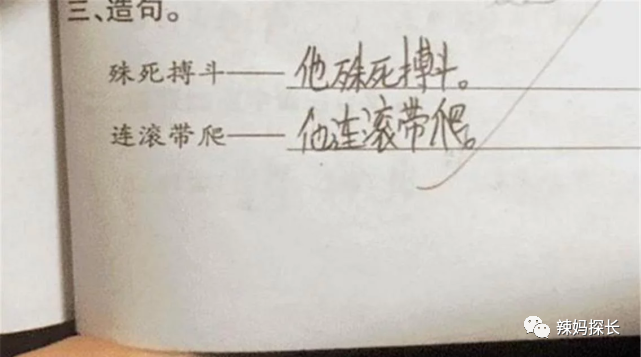 三、造句。
殊死搏斗——他殊死搏斗。
连滚带爬——他连滚带爬。
辣妈探长